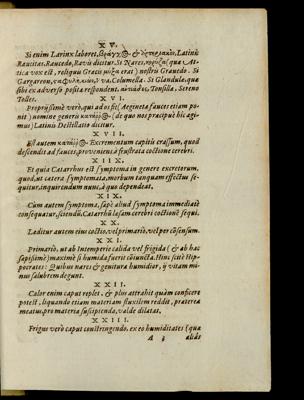 XV.
Si enim Larinx labores, βράγχ@ & ὑπερῶαι, Latinis
Raucitas, Raucedo, Ravis dicitur. Si Nares, κόρυζα (quæ At-
tica vox est, reliqui Græcis μύξα erat) nostris Grauedo. Si
Gargareon, Columella. Si Glandulæ, quæ
sibi ex adverso posita respondent. Tonsilla, Sereno
Toles.
XVI.
Propriissimè verò, qui ad os fit (Aegineta fauces etiam po-
nit) nomine generis κατάρρ@ (de quo nos præcipuè hic agi-
mus) Latinis Destillatio dicitur.
XVII.
Est autem κατάρρ@ Excrementum capitis crassum, quod
descendit ad fauces, proveniens à frustrata coctione cerebri.
XIIX.
Et quia Catarrhus est symptoma in genere excretorum,
quod, ut cætera symptomata, morbum tanquam effectus se-
quitur, inquirendum nunc, à quo dependeat.
XIX.
Cum autem symptoma, sæpè aliud symptoma immediatè
consequatur, sciendũ, Catarrhũ læsam cerebri coctionẽ sequi.
XX.
Læditur autem eius coctio, vel primariò, vel per cõsensum.
XXI.
Primariò, ut ab Intemperie calida vel frigida (& ab hac
sæpissimè) maximè si humida fuerit coiuncta. Hinc scitè Hip-
pocrates: Quibus nares & genitura humidior, ij vitam mi-
nus salubrem degunt.
XXII.
Calor enim caput replet, & plus attrahit quàm conficere
potest, liquando etiam materiam fluxilem reddit, præterea
meatus, pro materia suscipienda, valdè dilatat.
XXIII.
Frigus verò caput constringendo, ex eo humiditates (quæ
A 3 aliàs